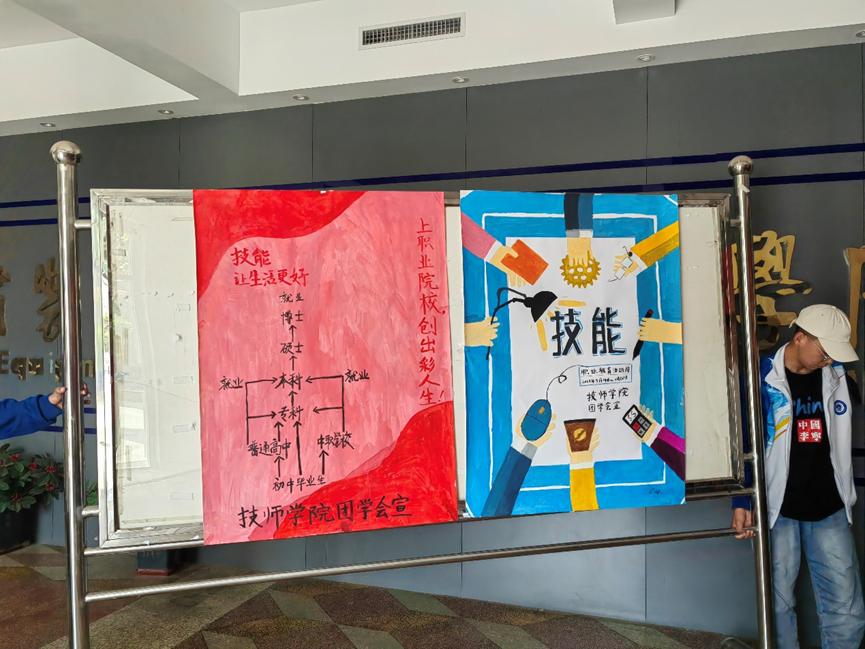 技能
让生活更好
上职业院校,创出彩人生!
就业
博士
硕士
就业
本科
就业
专科
普通高中
中职学校
初中毕业生
技师学院团学会宣
技能
职业教育活动周
技师学院
团学会宣
中國
李寧